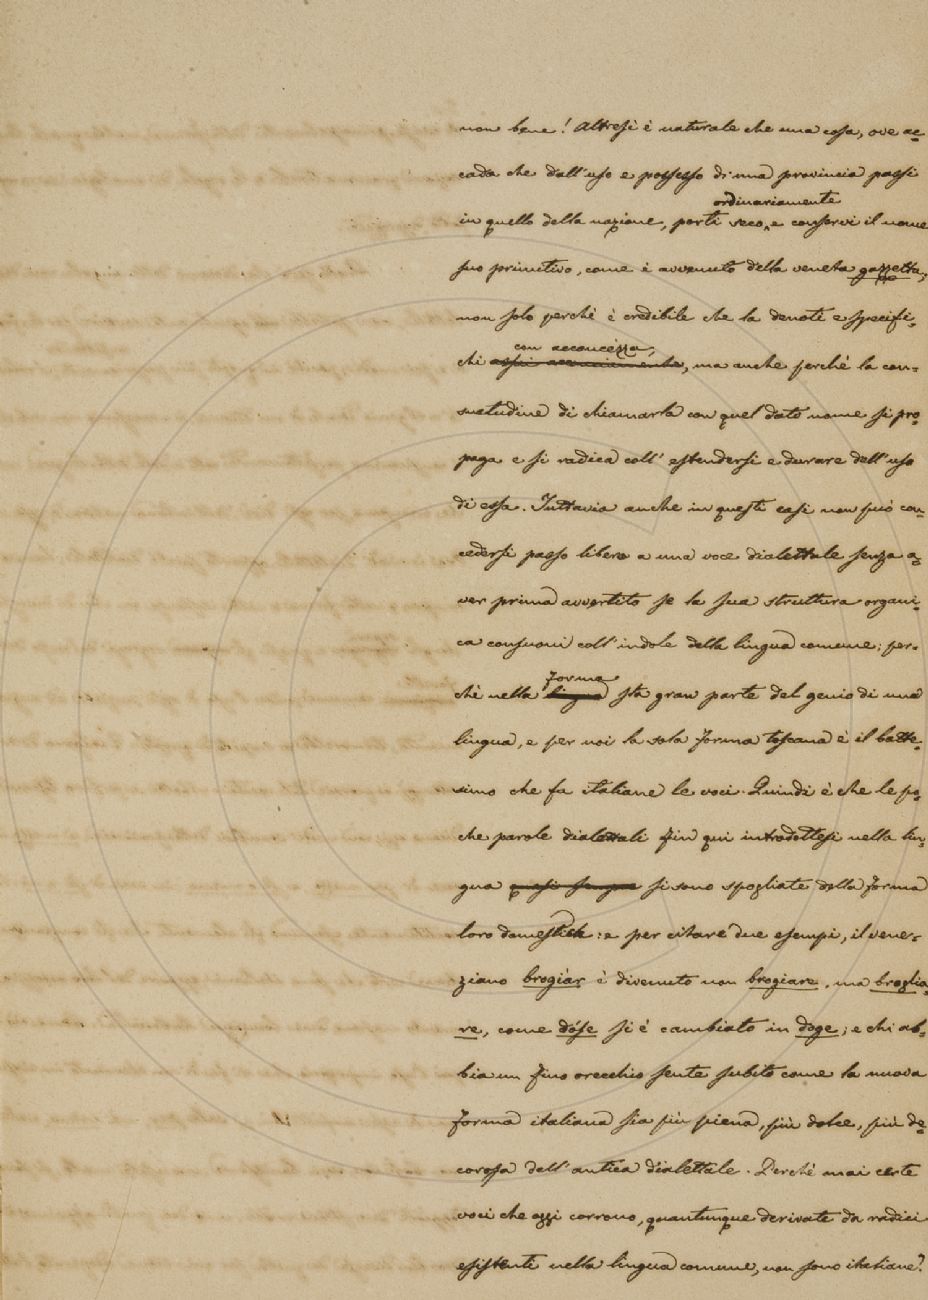 non bene! Altresì è naturale che una cosa, ove ac-
cada che dall'uso e possesso di una provincia passi
ordinariamente
in quello della nazione, porti seco, e conservi il nome
suo primitivo, come è avvenuto della veneta gazzetta;
non solo perchè è credibile che la denoti e specifi-
con acconcezza,
chi assai acconciamente, ma anche perchè la con-
suetudine di chiamarla con quel dato nome si pro-
paga e si radica coll' estendersi e durare dell'uso
di essa. Tuttavia anche in questi casi non può con-
cedersi passo libero a una voce dialettale senza a-
ver prima avvertito se la sua struttura organi-
ca consuoni coll'indole della lingua comune; per-
forma
chè nella lingua sta gran parte del genio di una
lingua, e per noi la sola forma toscana è il batte-
simo che fa italiane le voci. Quindi è che le po-
che parole dialettali fin qui introdottesi nella lin-
gua quasi sempre si sono spogliate della forma
loro domestica: e per citare due esempi, il vene-
ziano brogiàr è divenuto non brogiare, ma broglia-
re, come dóse si è cambiato in doge; e chi ab-
bia un fino orecchio sente subito come la nuova
forma italiana sia più piena, più dolce, più de-
corosa dell'antica dialettale. Perchè mai certe
voci che oggi corrono, quantunque derivate da radici
esistenti nella lingua comune, non sono italiane?